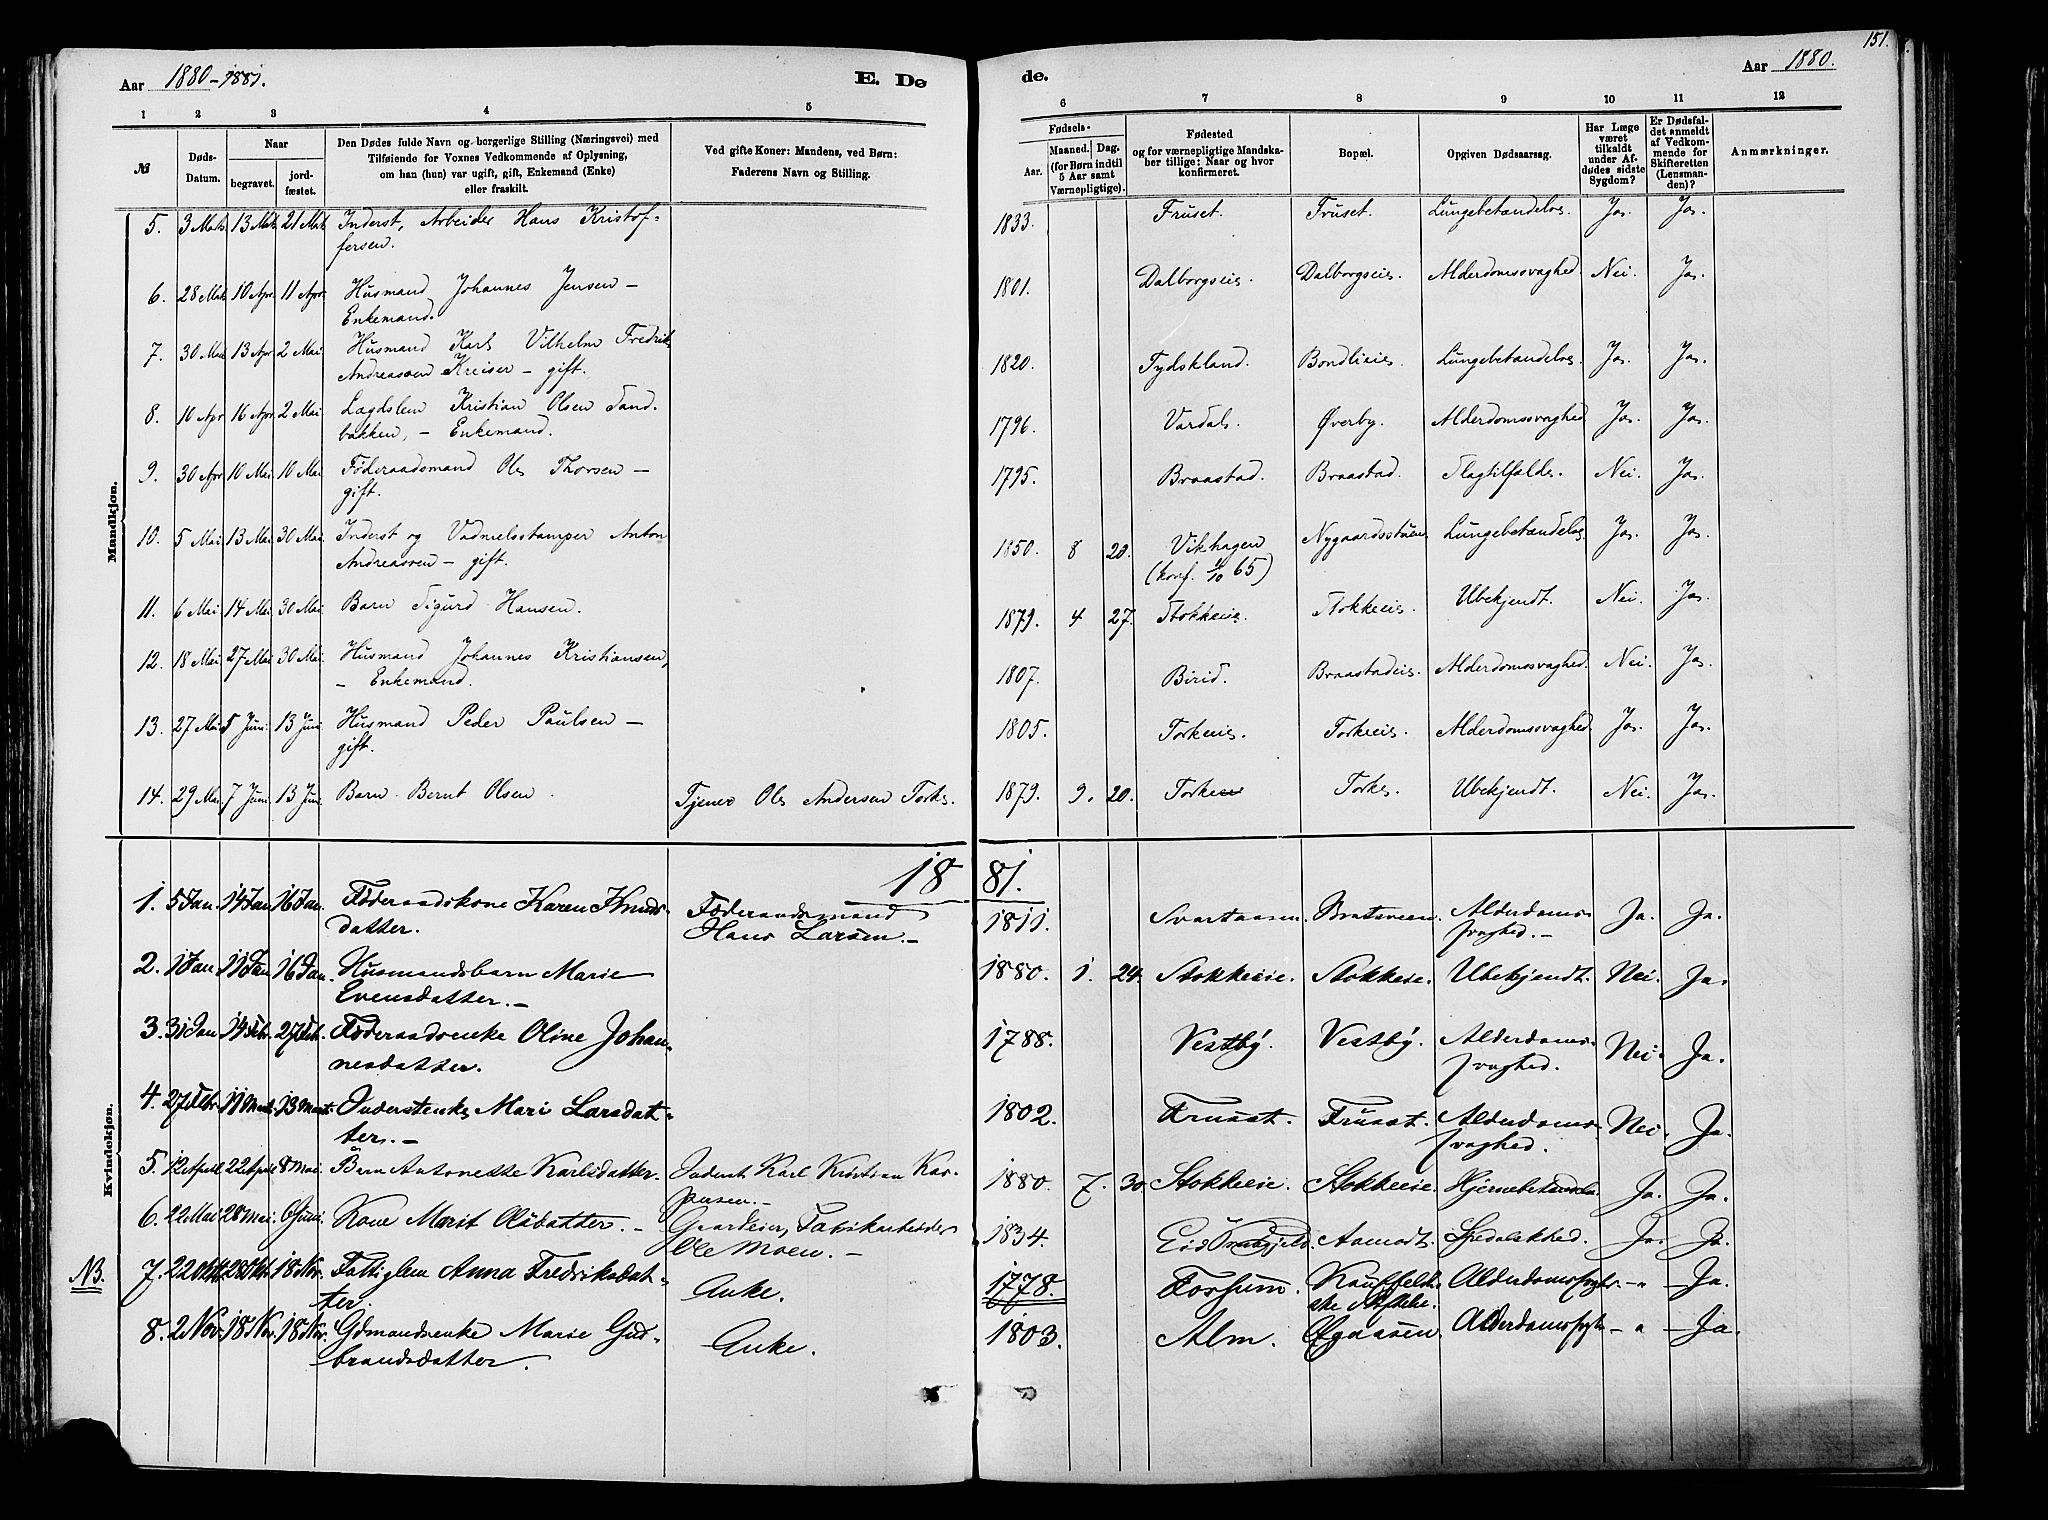 151.
Aar 1880-1881.
E. Dø
de.
Aar 1880.
1 2 3 4 5 6 7 8 9 10 11 12
№
Døds-Datum.
Naar
begravet.
jordfæstet.
Den Dødes fulde Navn og borgerlige Stilling (Næringsvei) med
Tilføiende for Voxnes Vedkommende af Oplysning,
om han (hun) var ugift, gift, Enkemand (Enke)
eller fraskilt.
Ved gifte Koner: Mandens, ved Børn:
Faderens Navn og Stilling.
Fødsels-
Aar.
Maaned. Dag.
(for Børn indtil
5 Aar samt
Værnepligtige).
Fødested
og for værnepligtige Mandska-
ber tillige: Naar og hvor
konfirmeret.
Bopæl.
Opgiven Dødsaarsag.
Har Læge
været
tilkaldt
under Af-
dødes sidste
Sygdom?
Er Dødsfal-
det anmeldt
af Vedkom-
mende for
Skifteretten
(Lensman-
den)?
Anmærkninger.
Mandkjøn.
5. 3 Mars 13 Mars 21 Mars Inderst, Arbeider Hans Kristof- 1833. Fruset. Fruset. Lungebetændelse. Ja. Ja.
fersen.
6. 28 Mars 10 Apr. 11 Apr. Husmand Johannes Jensen – 1801. Dalborgseie. Dalborgseie. Alderdomssvaghed Nei. Ja.
Enkemand.
7. 30 Mars 13 Apr. 2 Mai. Husmand Karl Vilhelm Fredrik 1820. Tydskland. Bondlieie. Lungebetændelse. Ja. Ja.
Andreassen Kreiser – gift.
8. 10 Apr. 16 Apr. 2 Mai. Lægdslem Kristian Olsen Sand- 1796. Vardal. Øverby. Alderdomssvaghed Ja. Ja.
bakken, – Enkemand.
9. 30 Apr. 10 Mai. 10 Mai. Føderaadsmand Ole Thorsen – 1795. Braastad. Braastad. Slagtilfælde. Nei. Ja.
gift.
10. 5 Mai 13 Mai. 30 Mai. Inderst og Vadmelsstamper Anton 1850. 8 20. Vikhagen Nygaardsstuen. Lungebetændelse. Ja. Ja.
Andreassen – gift. (konf. 1/10 65)
11. 6 Mai. 14 Mai. 30 Mai. Barn Sigurd Hansen. 1879. 4 27. Stokkeeie. Stokkeeie. Ubekjendt. Nei. Ja.
12. 18 Mai. 27 Mai. 30 Mai. Husmand Johannes Kristiansen, 1807. Birid. Braastadeie. Alderdomssvaghed. Nei. Ja.
– Enkemand.
13. 27 Mai. 5 Juni. 13 Juni. Husmand Peder Paulsen – 1805. Torkeeie. Torkeeie. Alderdomssvaghed. Ja. Ja.
gift.
14. 29 Mai. 7 Juni. 13 Juni. Barn Bernt Olsen. Tjener Ole Andersen Torke. 1879. 9. 20. Torke Torke. Ubekjendt. Nei. Ja.
1881.
Kvindekjøn.
1. 5 Jan. 14 Jan. 16 Jan. Føderaadskone Karen Knuds- Føderaadsmand 1811. Svartaasen. Bratsveen. Alderdoms- Ja. Ja.
datter. Hans Larsen. – svaghed. –
2. 1 Jan. 11 Jan. 16 Jan. Husmandsbarn Marie 1880. 1. 24. Stokkeeie. Stokkeie. Ubekjendt. Nei. Ja.
Evensdatter. –
3. 31 Jan 14 Feb. 27 Feb. Føderaadsenke Oline Johan- 1788. Vestby. Vestby. Alderdoms- Nei. Ja.
nesdatter. svaghed.
4. 27 Feb. 11 Marts. 13 Marts. Inderstenke Mari Larsdat- 1802. Fruset. Fruset. Alderdoms- Nei. Ja.
ter. – svaghed.
5. 12 April 22 April 8 Mai. Barn Antonette Karlsdatter. Inderst Karl Kristian Kas- 1880. 7. 30. Stokkeeie. Stokkeeie. Hjernebetændelse. Ja. Ja.
persen. –
6. 22 Mai 28 Mai. 6 Juni. Kone Marit Olsdatter. – Gaardeier, Fabrikarbeider 1834. Eid Aamodt. Spedalskhed. Ja. Ja.
Ole Moen. –
NB. 7. 22 Okt. 28 Okt. 18 Nov. Fattiglem Anna Fredriksdat- Enke. 1778. Fossum. Kauffeldt- Alderdomssvagh. – " – Ja.
ter. ske Stiftelse.
8. 2 Nov. 18 Nov. 18 Nov. Gdmandsenke Marie Gud- Enke. 1803. Alm. Øgaasen. Alderdomssvagh. – " – Ja.
brandsdatter.